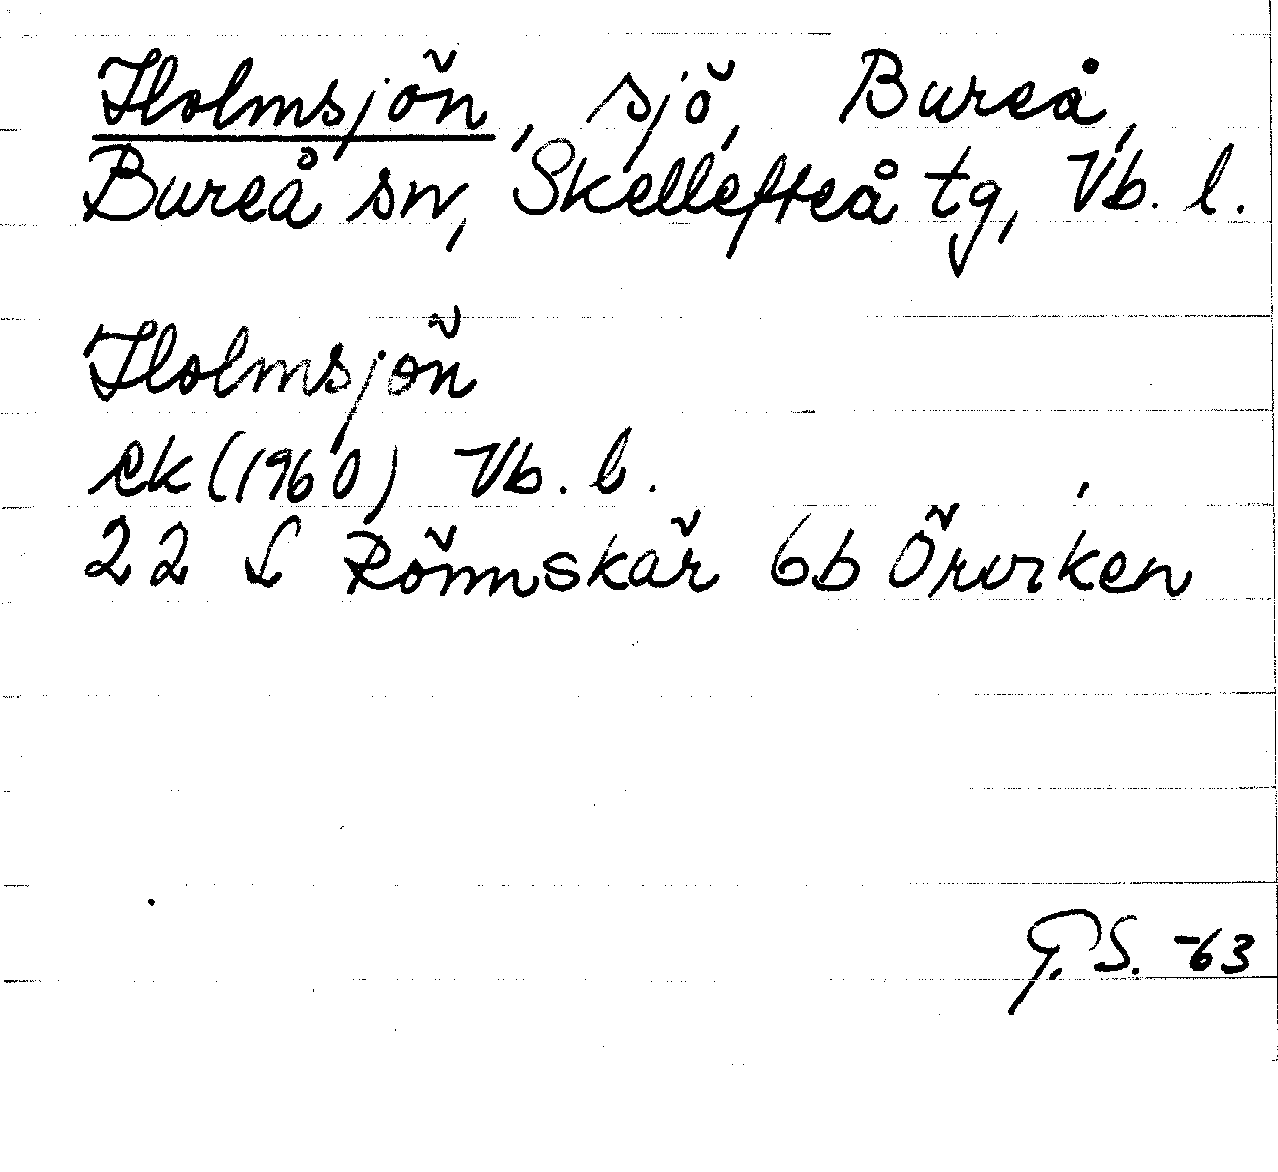 Holmsjön, sjö, Bureå,
Bureå sn, Skellefteå tg, Vb. l.
Holmsjön
ek (1960) Vb. l.
22 L Rönnskär 6b Örviken
G.S. -63